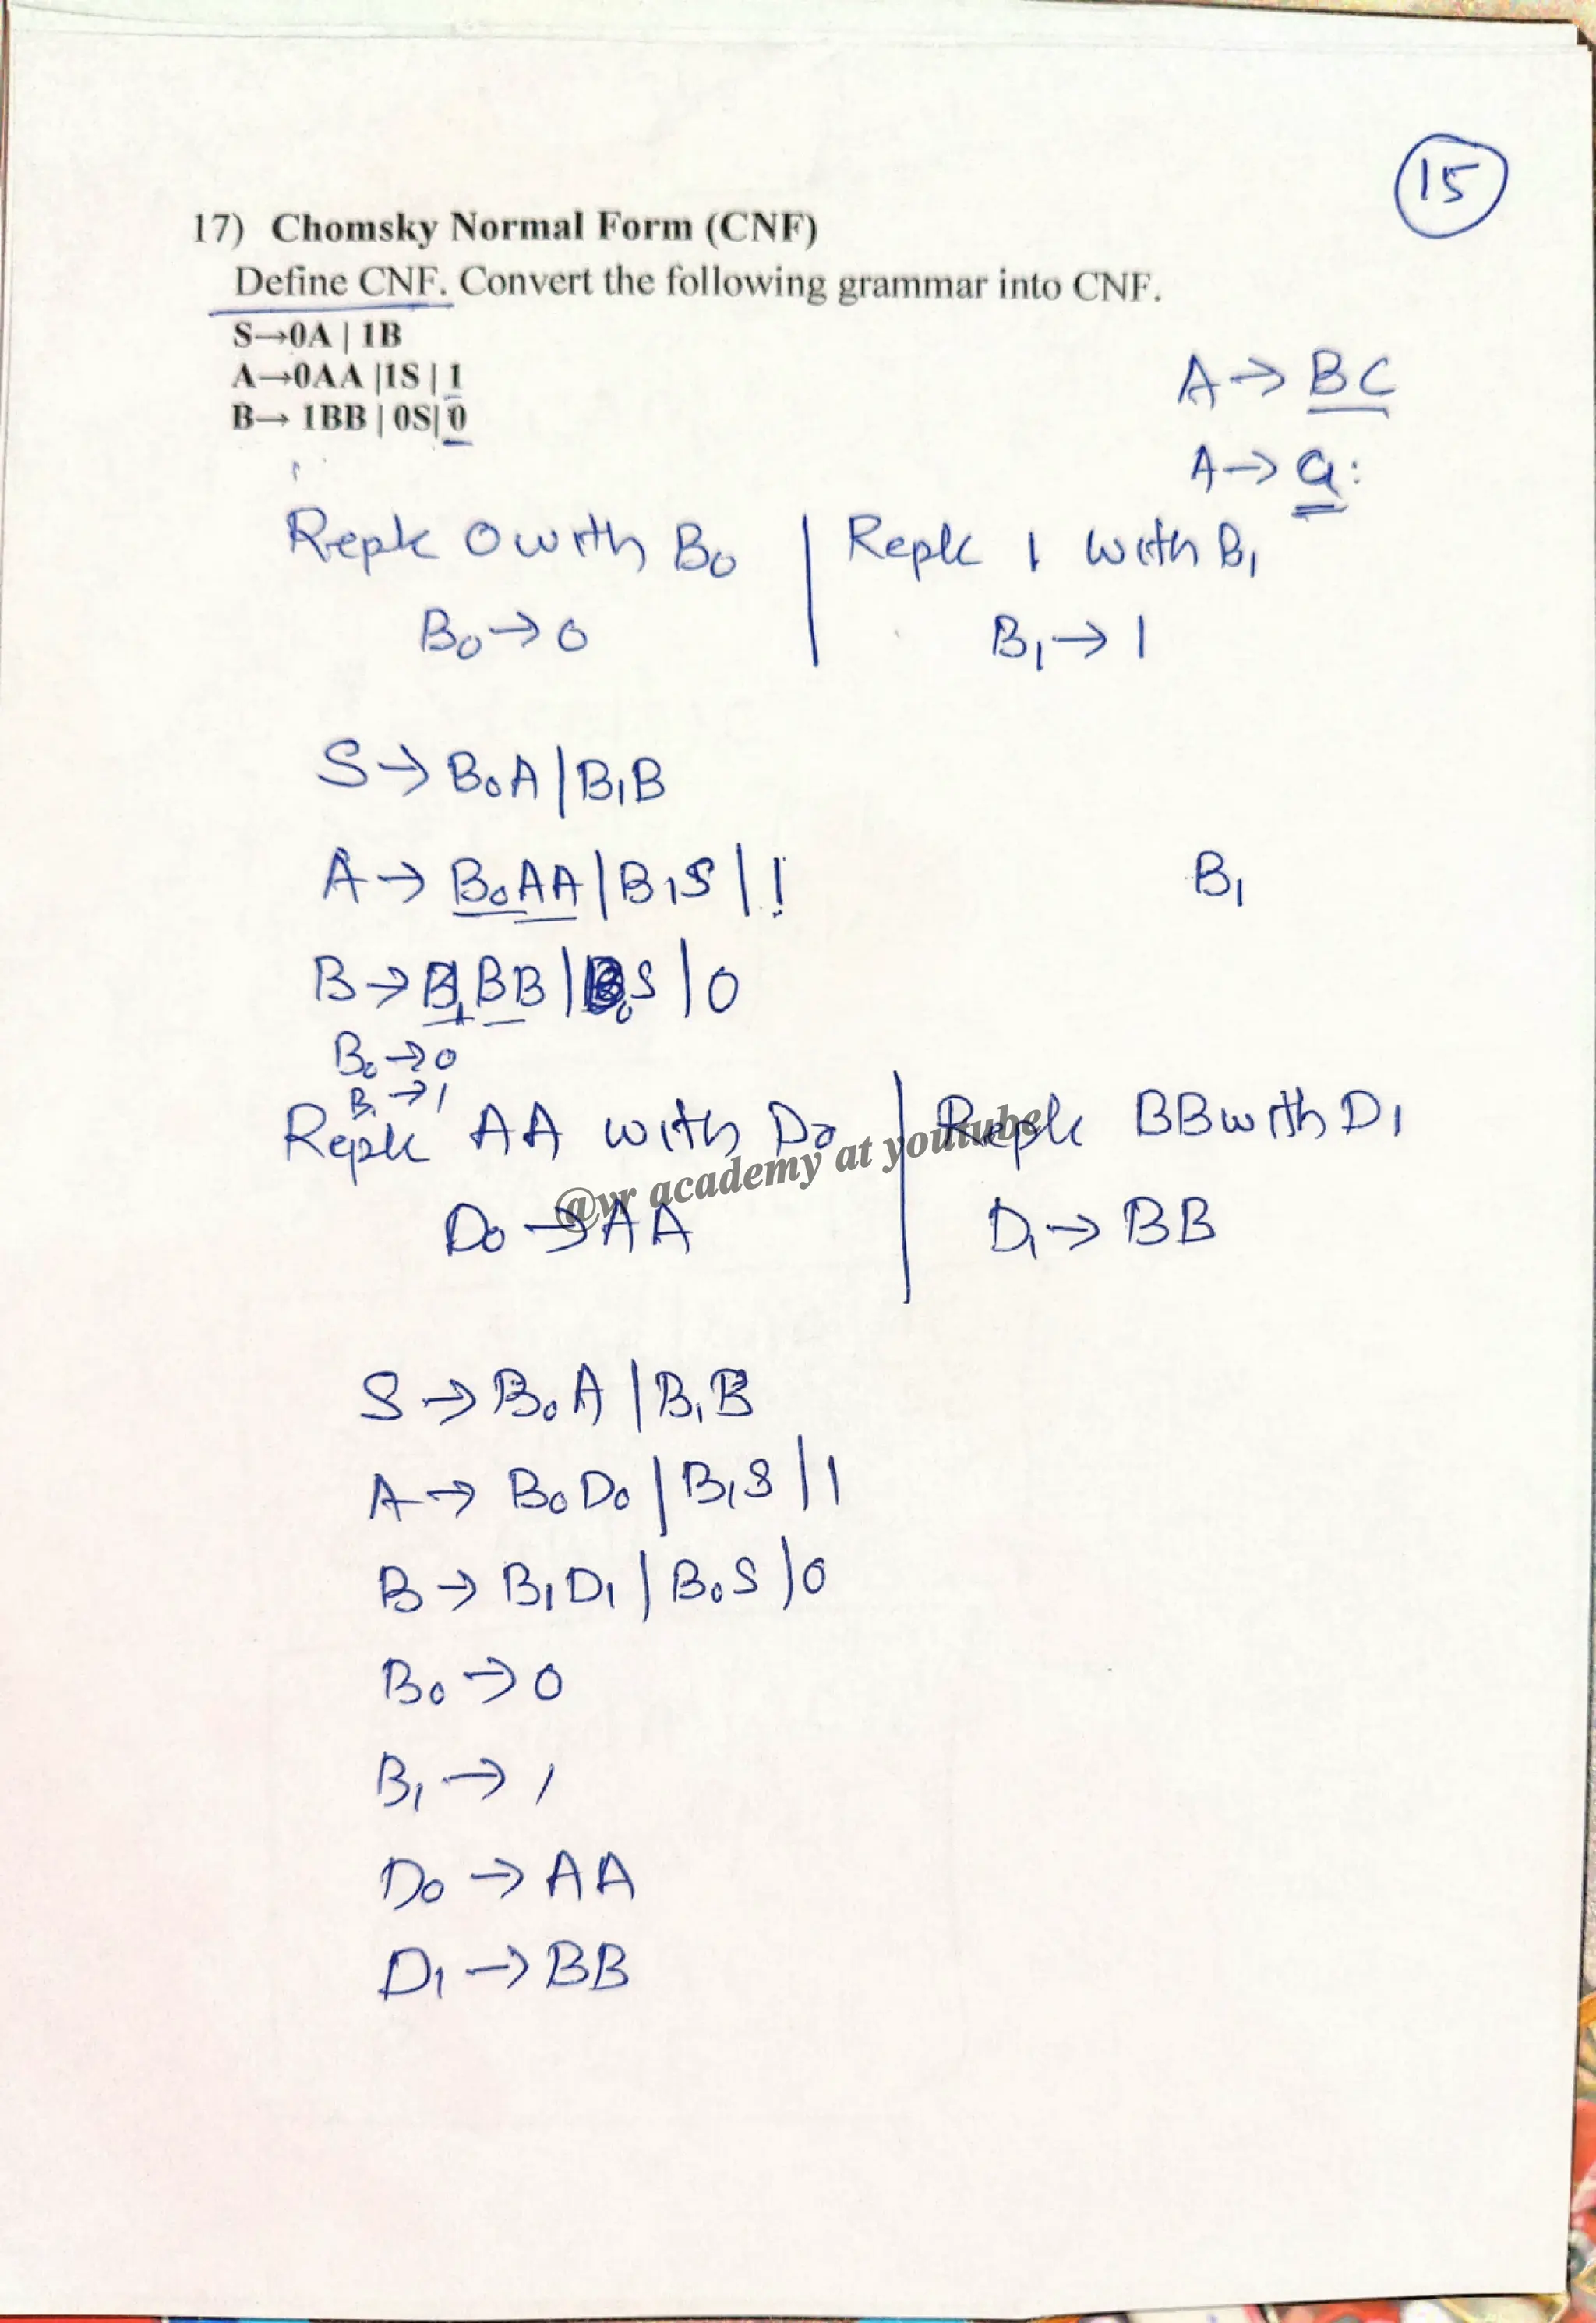 15
17) Chomsky Normal Form (CNF)
Define CNF. Convert the following grammar into CNF.
S→0A | 1B
A→0AA |1S | 1
B→ 1BB | 0S| 0
A → BC
A → a
Replc 0 with B₀ | Replc 1 with B₁
B₀ → 0
B₁ → 1
S → B₀A | B₁B
A → B₀AA | B₁S | 1
B₁
B → B₁BB | B₀S | 0
B₀ → 0
B₁ → 1
Replc AA with D₀ | Replc BB with D₁
@vr academy at youtube
D₀ → AA
D₁ → BB
S → B₀A | B₁B
A → B₀D₀ | B₁S | 1
B → B₁D₁ | B₀S | 0
B₀ → 0
B₁ → 1
D₀ → AA
D₁ → BB